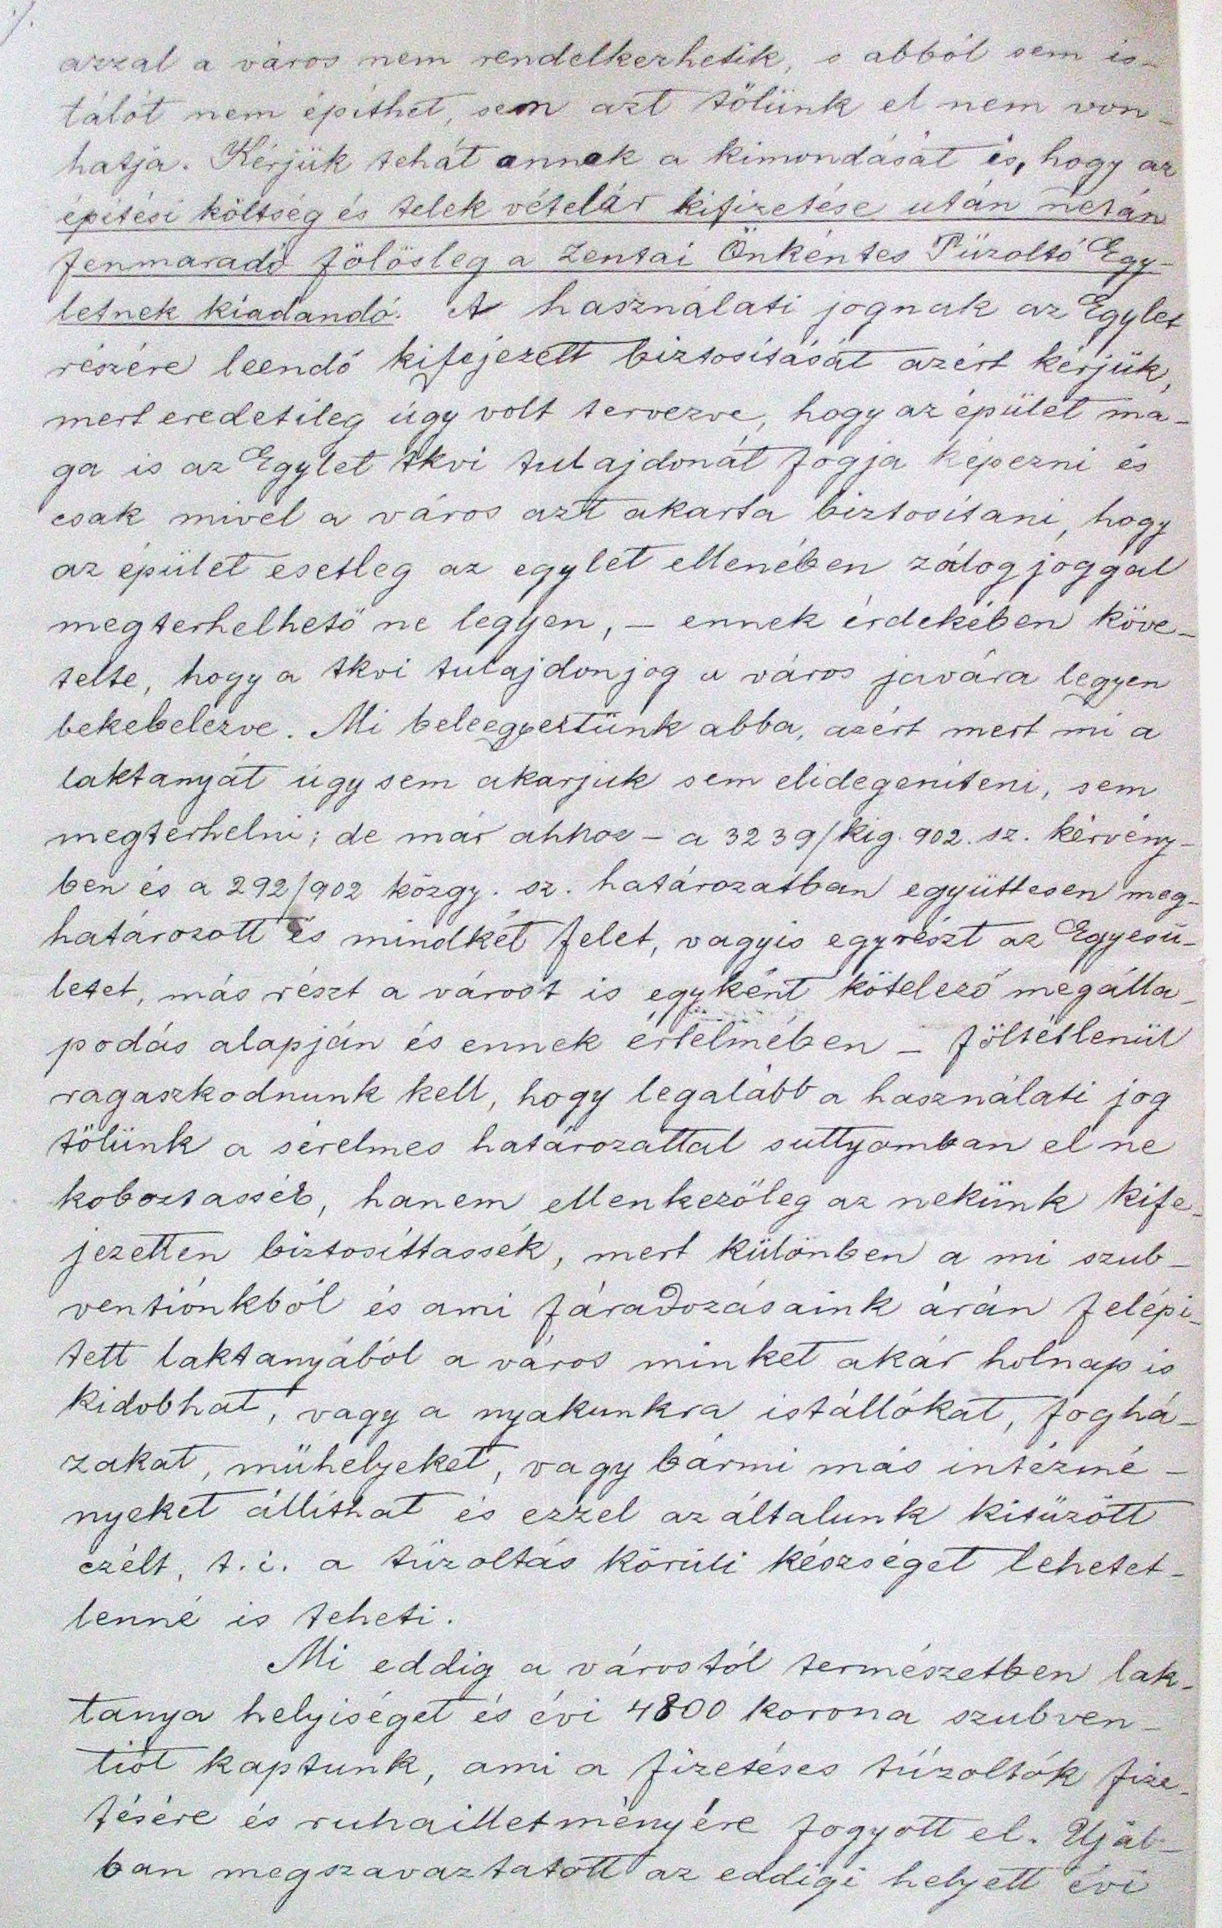 azzal a város nem rendelkezhetik, s abból sem is-
tálót nem épithet, sem azt tőlünk el nem von-
hatja. Kérjük tehát annak a kimondását is, hogy az
épitési költség és telek vételár kifizetése után netán
fenmaradó fölösleg a Zentai Önkéntes Tüzoltó Egy-
letnek kiadandó. A használati jognak az Egylet
részére leendő kifejezett biztositását azért kérjük,
mert eredetileg úgy volt tervezve, hogy az épület ma-
ga is az Egylet tkvi tulajdonát fogja képezni és
csak mivel a város azt akarta biztositani, hogy
az épület esetleg az egylet ellenében zálogjoggal
megterhelhető ne legyen, – ennek érdekében köve-
telte, hogy a tkvi tulajdonjog a város javára legyen
bekebelezve. Mi beleegyeztünk abba, azért mert mi a
laktanyát úgy sem akarjuk sem elidegeniteni, sem
megterhelni; de már ahhoz – a 3239/kig. 902. sz. kérvény-
ben és a 292/902 közgy. sz. határozatban együttesen meg-
határozott és mindkét felet, vagyis egyrészt az Egyesü-
letet, más részt a várost is egyként kötelező megálla-
podás alapján és ennek értelmében – föltétlenül
ragaszkodnunk kell, hogy legalább a használati jog
tőlünk a sérelmes határozattal suttyomban el ne
koboztassék, hanem ellenkezőleg az nekünk kife-
jezetten biztosittassék, mert különben a mi szub-
ventiónkból és ami fáradozásaink árán felépi-
tett laktanyából a város minket akár holnap is
kidobhat, vagy a nyakunkra istállókat, foghá-
zakat, műhelyeket, vagy bármi más intézmé-
nyeket állithat és ezzel az általunk kitűzött
czélt, t. i. a tűzoltás körüli készséget lehetet-
lenné is teheti.
Mi eddig a várostól természetben lak-
tanya helyiséget és évi 4800 korona szubven-
tiót kaptunk, ami a fizetéses tűzoltók fize-
tésére és ruhailletményére fogyott el. Ujab-
ban megszavaztatott az eddigi helyett évi